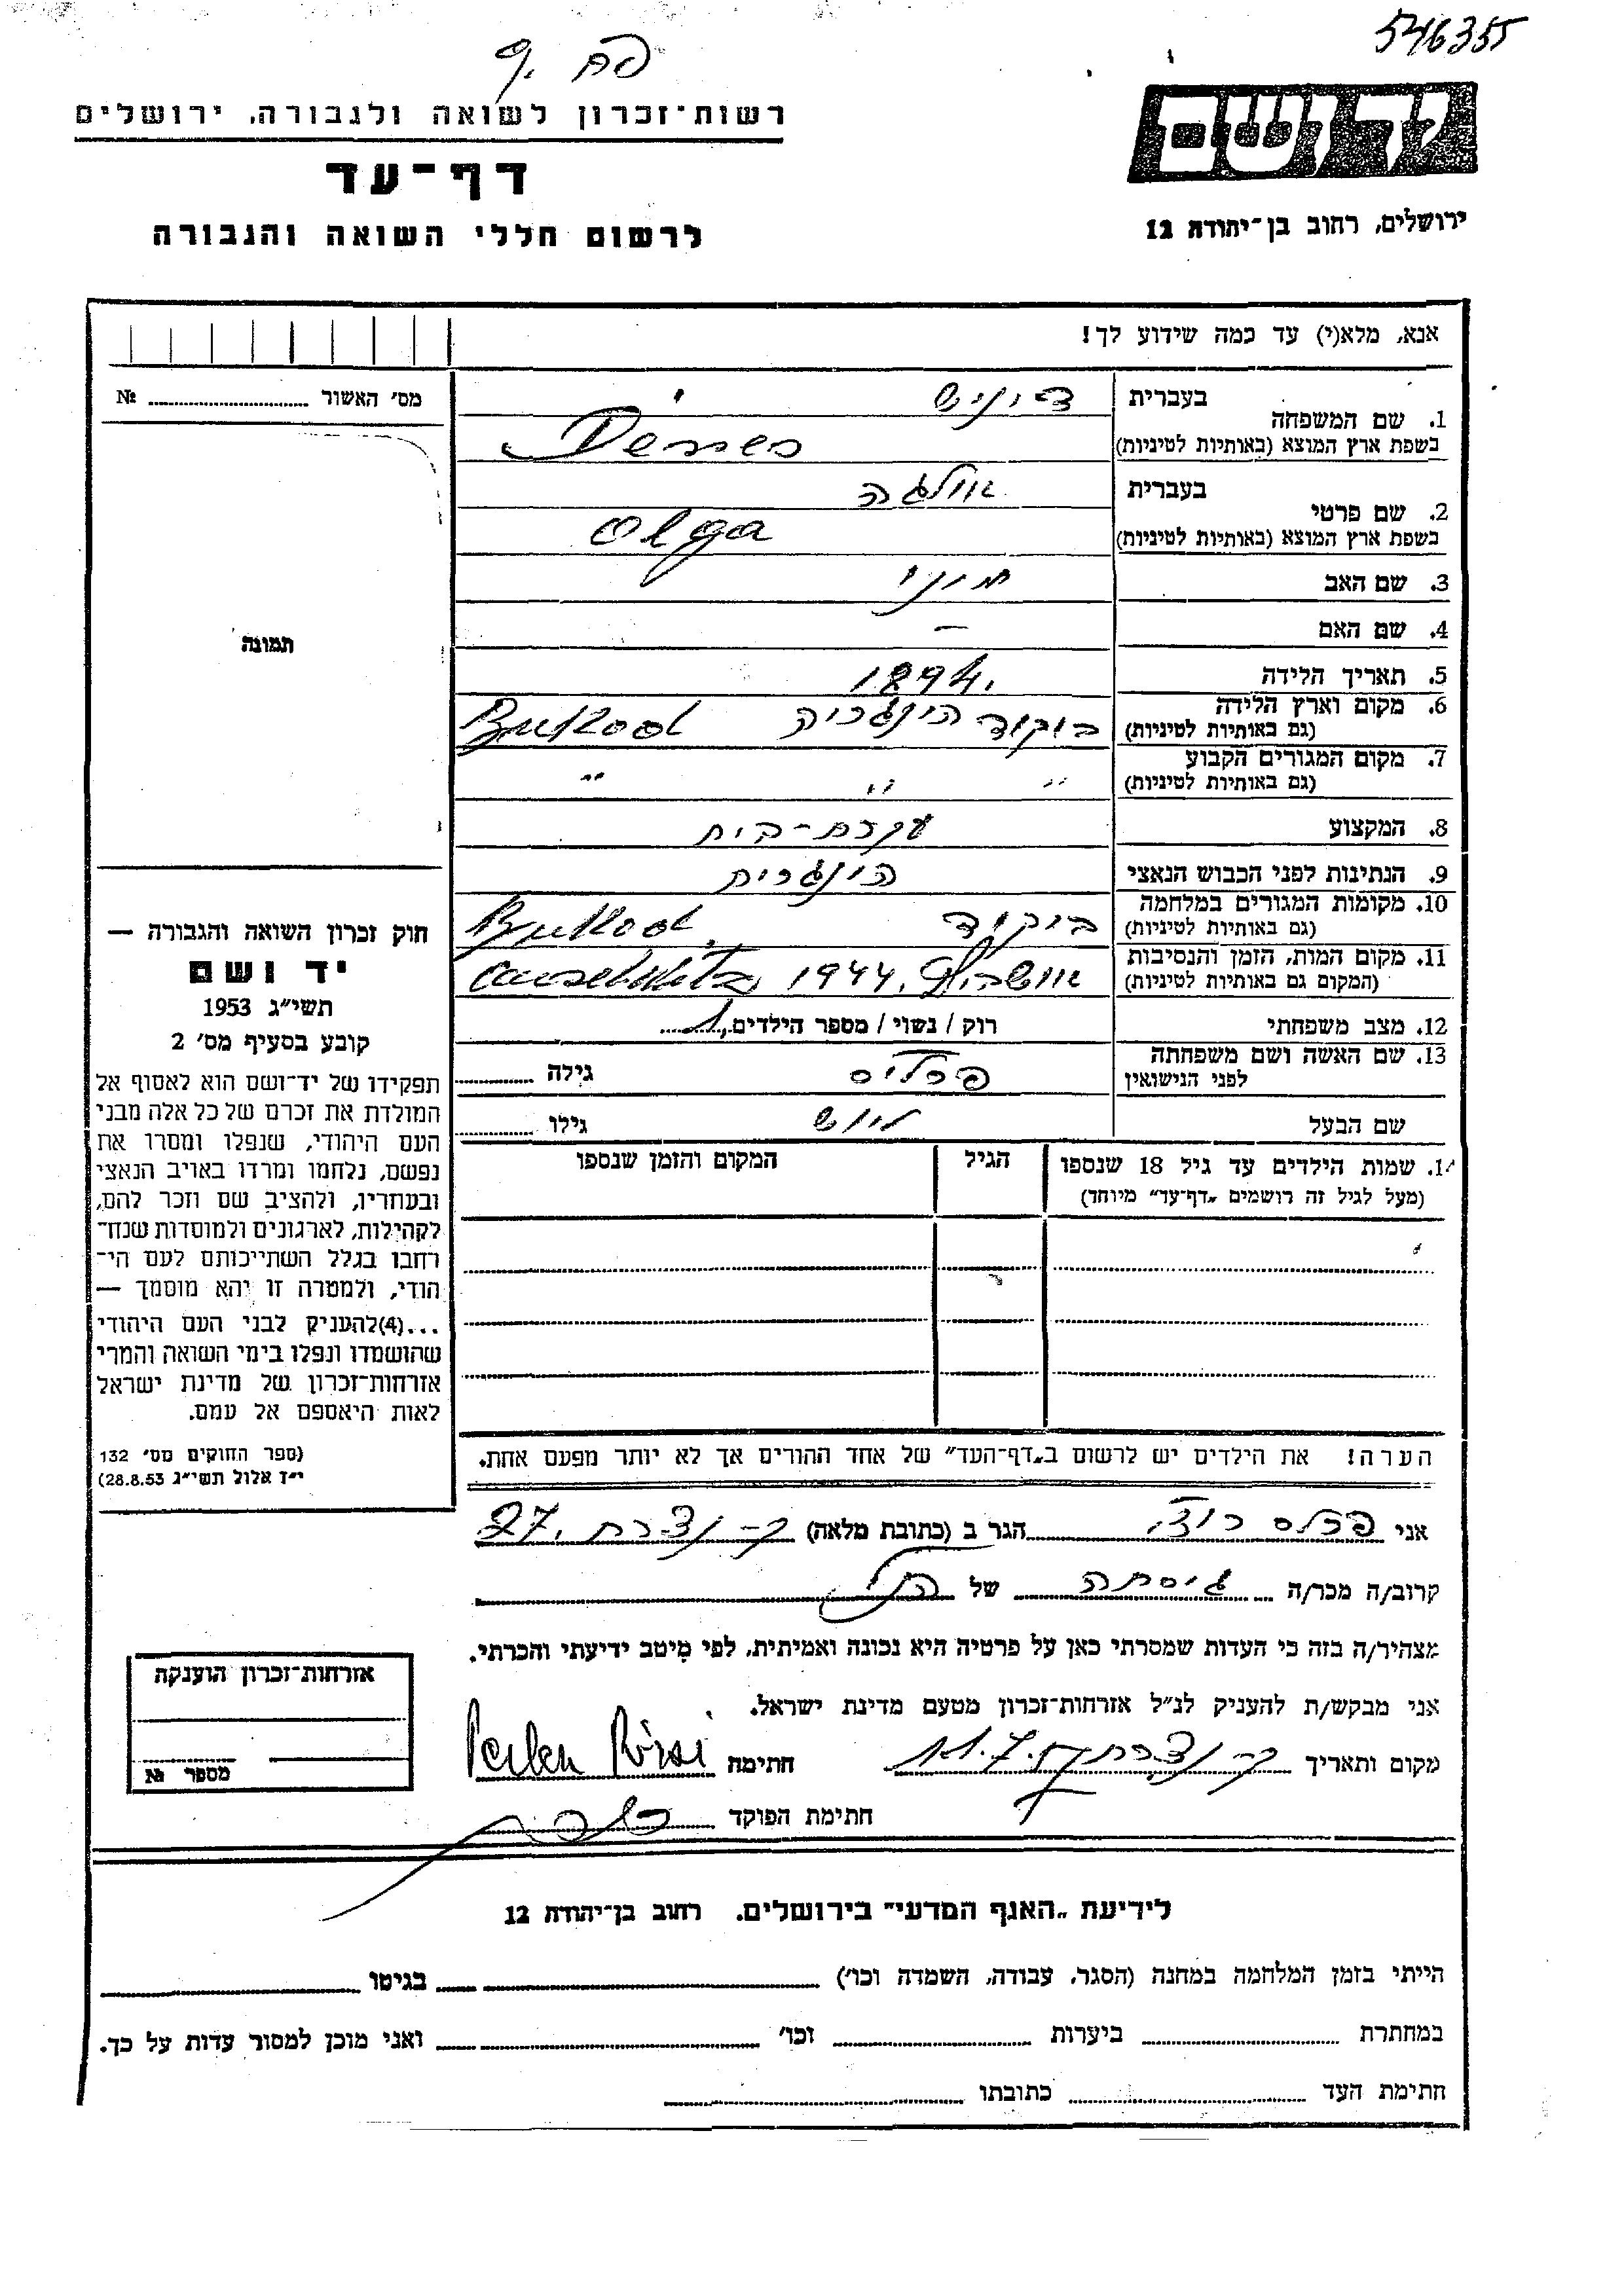 546355
פח .9
רשות־זכרון לשואה ולגבורה, ירושלים
דף־עד
לרשום חללי השואה והגבורה
ידושם
ירושלים, רחוב בן־יהודה 12
אנא, מלא(י) עד כמה שידוע לך!
מס׳ האשור № 
1. שם המשפחה בעברית
בשפת ארץ המוצא (באותיות לטיניות)
2. שם פרטי בעברית אולגה
בשפת ארץ המוצא (באותיות לטיניות) Olga
3. שם האב
4. שם האם –
תמונה
5. תאריך הלידה 1894.
6. מקום וארץ הלידה
(גם באותיות לטיניות) בוקוד הונגריה Bukkod
7. מקום המגורים הקבוע
(גם באותיות לטיניות) " " "
8. המקצוע עקרת-בית
9. הנתינות לפני הכבוש הנאצי הונגרית
10. מקומות המגורים במלחמה
(גם באותיות לטיניות) בוקוד Bukkod
11. מקום המות, הזמן והנסיבות
(המקום גם באותיות לטיניות) אושביץ 1944. Auschwitz
12. מצב משפחתי רוק / נשוי / מספר הילדים 1
13. שם האשה ושם משפחתה
לפני הנישואין פרלס גילה
שם הבעל ליוש גילו
14. שמות הילדים עד גיל 18 שנספו הגיל המקום והזמן שנספו
(מעל לגיל זה רושמים „דף־עד״ מיוחד)
חוק זכרון השואה והגבורה —
יד ושם
תשי״ג 1953
קובע בסעיף מס׳ 2
תפקידו של יד־ושם הוא לאסוף אל
המולדת את זכרם של כל אלה מבני
העם היהודי, שנפלו ומסרו את
נפשם, נלחמו ומרדו באויב הנאצי
ובעוזריו, ולהציב שם וזכר להם,
לקהילות, לארגונים ולמוסדות שנח־
רחבו בגלל השתייכותם לעם הי־
הודי, ולמטרה זו יהא מוסמך —
...(4)להעניק לבני העם היהודי
שהושמדו ונפלו בימי השואה והמרי
אזרחות־זכרון של מדינת ישראל
לאות היאספם אל עמם.
(ספר החוקים מס׳ 132
י״ז אלול תשי״ג 28.8.53)
הערה! את הילדים יש לרשום ב„דף־העד״ של אחד ההורים אך לא יותר מפעם אחת.
אני פרלס רוזי הגר ב (כתובת מלאה) ק- נצרת 27.
קרוב/ה מכר/ה גיסתה של הנ״ל
מצהיר/ה בזה כי העדות שמסרתי כאן על פרטיה היא נכונה ואמיתית, לפי מיטב ידיעתי והכרתי.
אני מבקש/ת להעניק לנ״ל אזרחות־זכרון מטעם מדינת ישראל.
מקום ותאריך ק- נצרת חתימה Perlesz Rózsi
חתימת הפוקד
אזרחות־זכרון הוענקה
מספר №
לידיעת „האגף המדעי״ בירושלים. רחוב בן־יהודה 12
הייתי בזמן המלחמה במחנה (הסגר, עבודה, השמדה וכו׳) בגיטו
במחתרת ביערות וכו׳ ואני מוכן למסור עדות על כך.
חתימת העד כתובתו